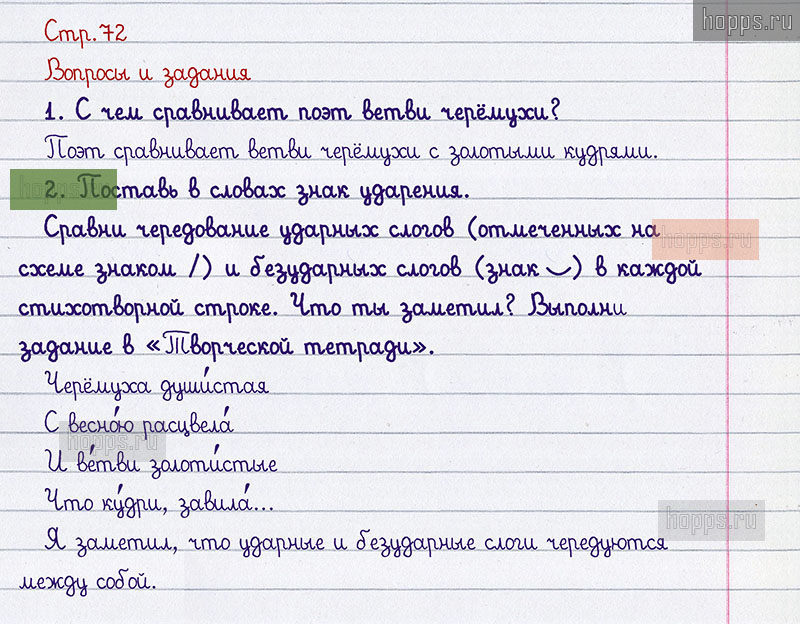 hopps.ru
Стр. 72
Вопросы и задания
1. С чем сравнивает поэт ветви черёмухи?
Поэт сравнивает ветви черёмухи с золотыми кудрями.
hopps.ru
2. Поставь в словах знак ударения.
Сравни чередование ударных слогов (отмеченных на
hopps.ru
схеме знаком /) и безударных слогов (знак ‿) в каждой
стихотворной строке. Что ты заметил? Выполни
задание в «Творческой тетради».
Черёмуха души́стая
С весно́ю расцвела́
hopps.ru
И ве́тви золоти́стые
Что ку́дри, завила́...
hopps.ru
Я заметил, что ударные и безударные слоги чередуются
между собой.